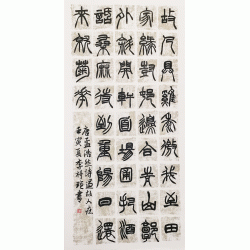 故人具雞黍邀我至田
家綠樹村邊合青山郭
外斜開軒面場圃把酒
話桑麻待到重陽日還
來就菊花
唐孟浩然詩過故人莊
壬寅夏李書